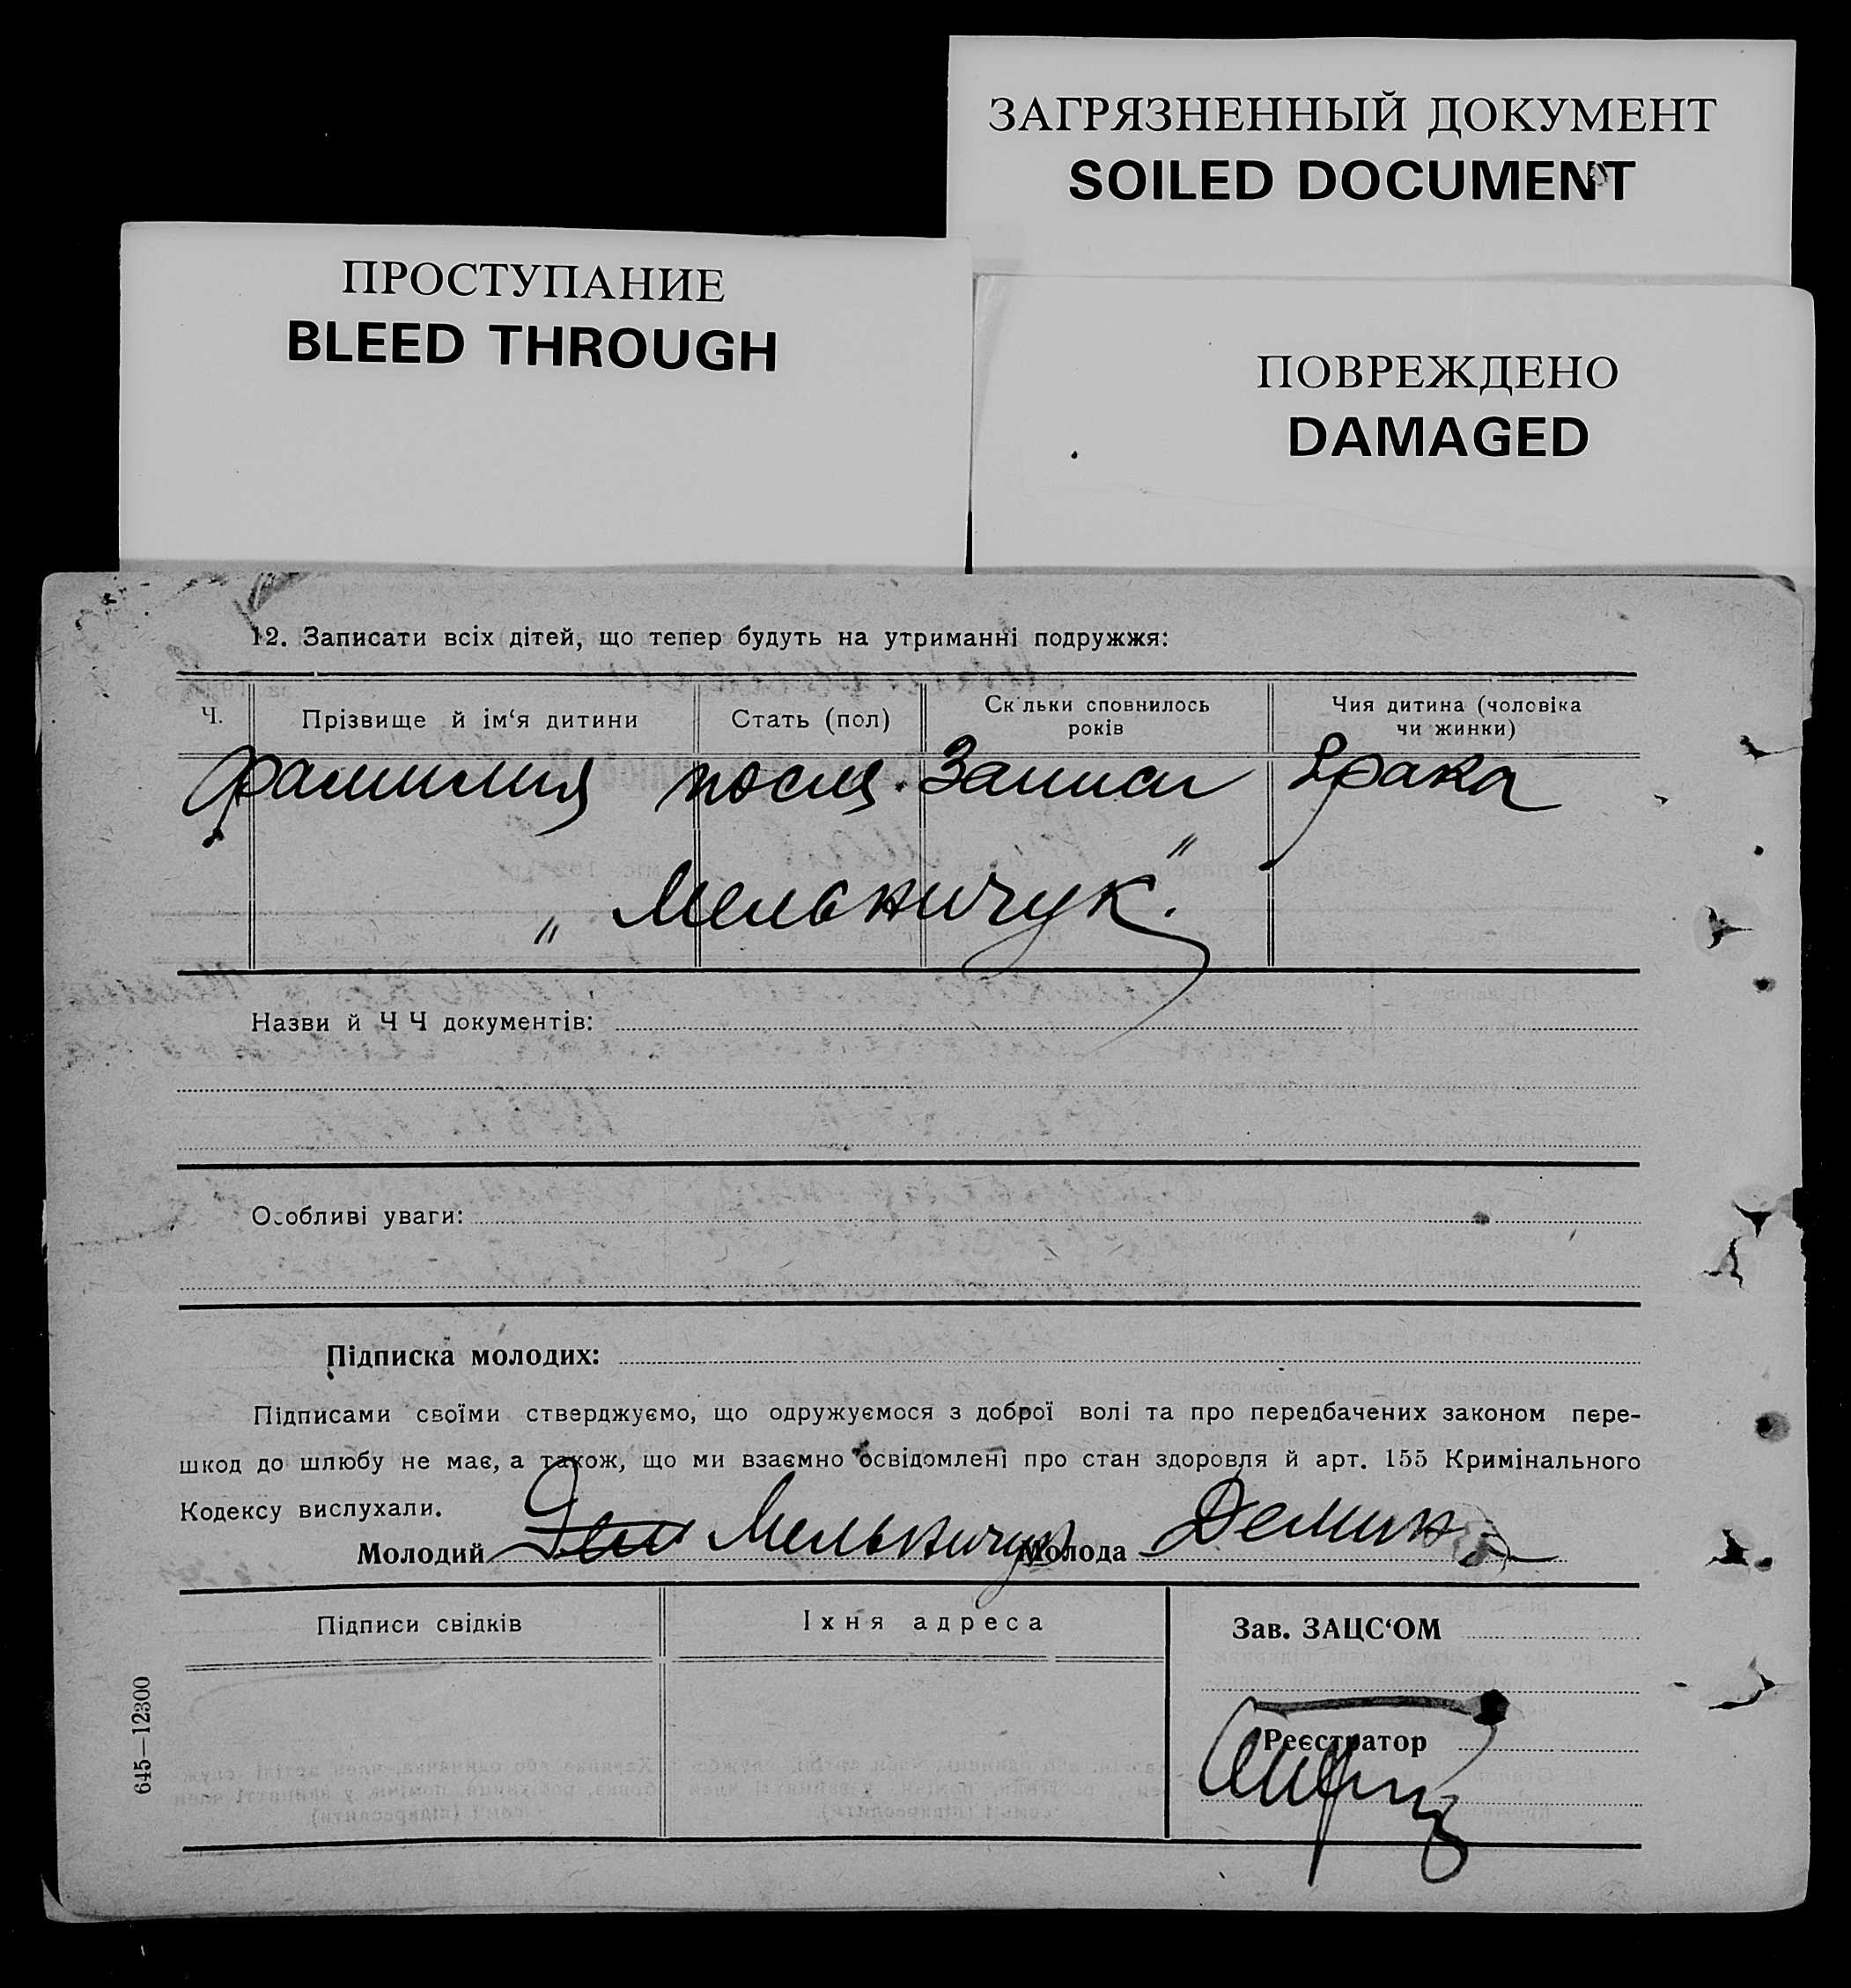 ЗАГРЯЗНЕННЫЙ ДОКУМЕНТ
SOILED DOCUMENT
ПРОСТУПАНИЕ
BLEED THROUGH
ПОВРЕЖДЕНО
DAMAGED
12. Записати всіх дітей, що тепер будуть на утриманні подружжя:
Ч. Прізвище й ім‘я дитини Стать (пол) Скільки сповнилось років Чия дитина (чоловіка чи жинки)
Фамилия после Записи брака
„ Мельничук "
Назви й Ч Ч документів:
Особливі уваги:
Підписка молодих:
Підписами своїми стверджуємо, що одружуємося з доброї волі та про передбачених законом пере-
шкод до шлюбу не має, а також, що ми взаємно освідомлені про стан здоровля й арт. 155 Кримінального
Кодексу вислухали.
Молодий Мельничук Молода
Підписи свідків Іхня адреса Зав. ЗАЦС‘ОМ
Реєстратор
645—12300